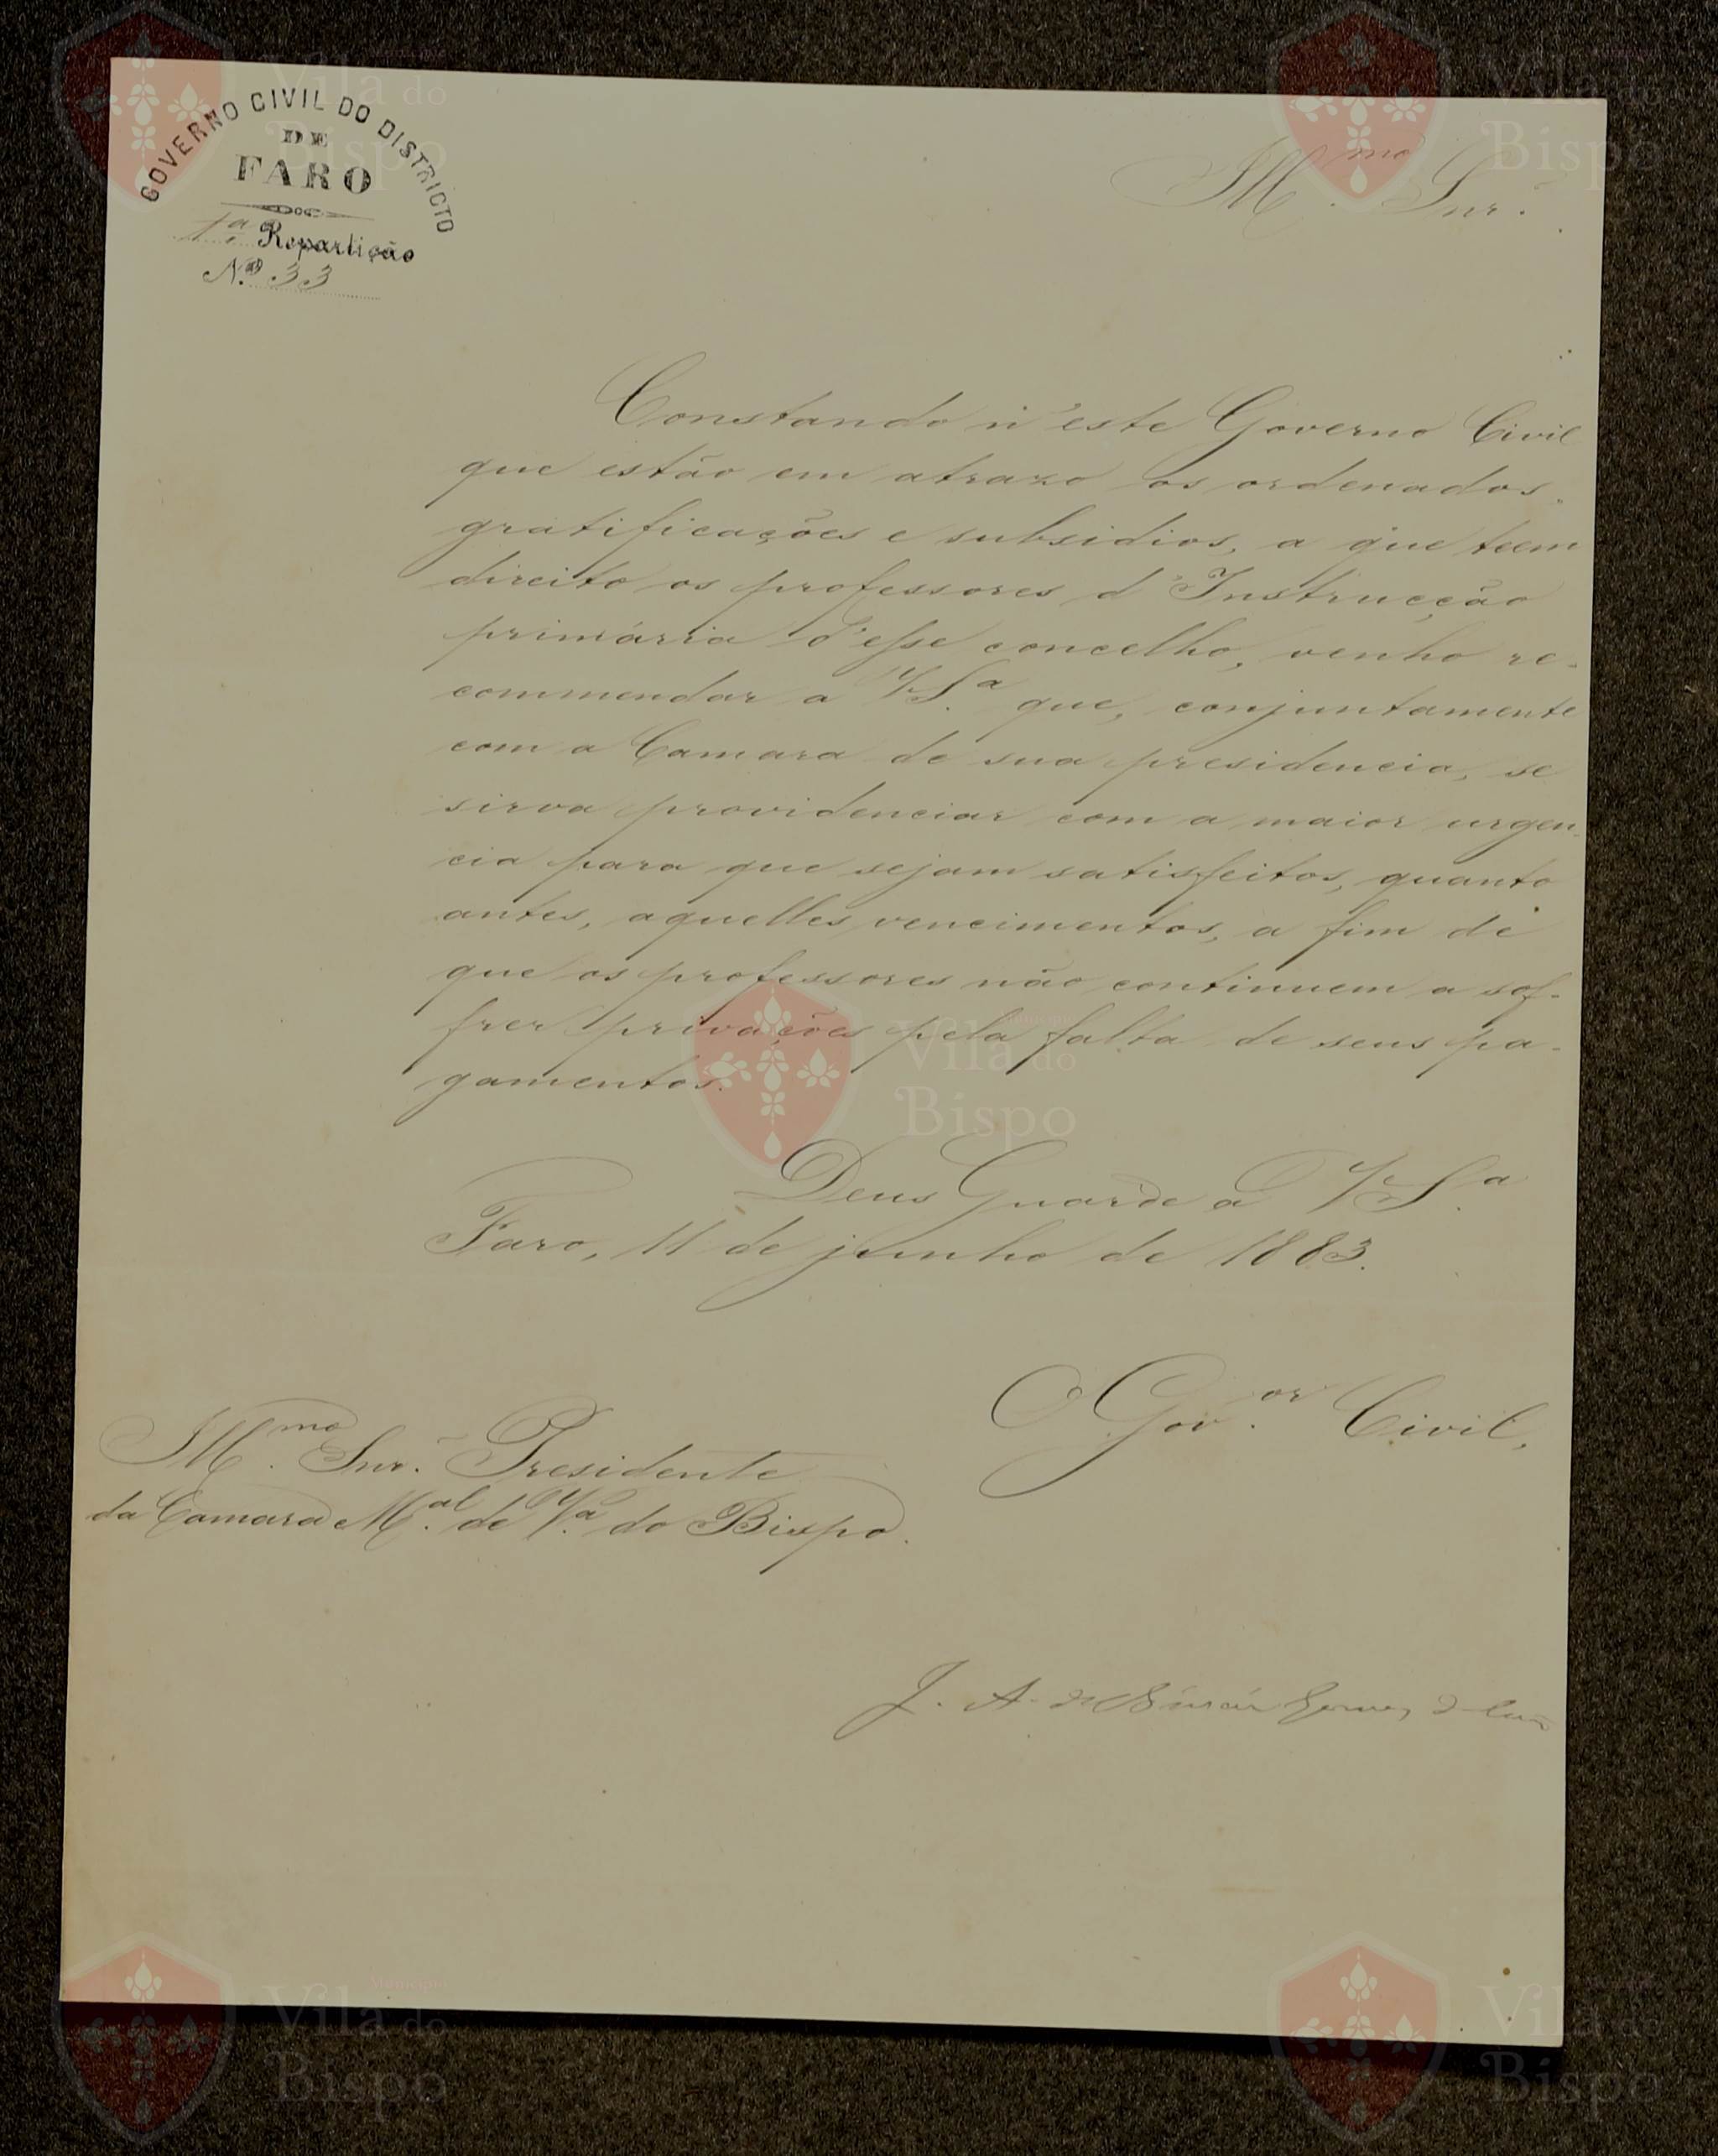 GOVERNO CIVIL DO DISTRICTO
DE
FARO
1.ª Repartição
N.º 33
Illmo. Snr.
Constando n'este Governo Civil
que estão em atrazo os ordenados,
gratificações e subsidios, a que teem
direito os professores d'Instrucção
primária d'esse concelho, venho re-
commendar a V. S.ª que, conjuntamente
com a Camara de sua presidencia, se
sirva providenciar com a maior urgen-
cia para que sejam satisfeitos, quanto
antes, aquelles vencimentos, a fim de
que os professores não continuem a sof-
frer privações pela falta de seus pa-
gamentos.
Deus Guarde a V. S.ª
Faro, 11 de junho de 1883.
O Gov.or Civil,
Illmo. Snr. Presidente
da Camara M.al de V.ª do Bispo.
J. A. de
Vila do
Bispo
Vila do
Bispo
Município
Vila do
Bispo
Município
Vila do
Bispo
Vila do
Bispo